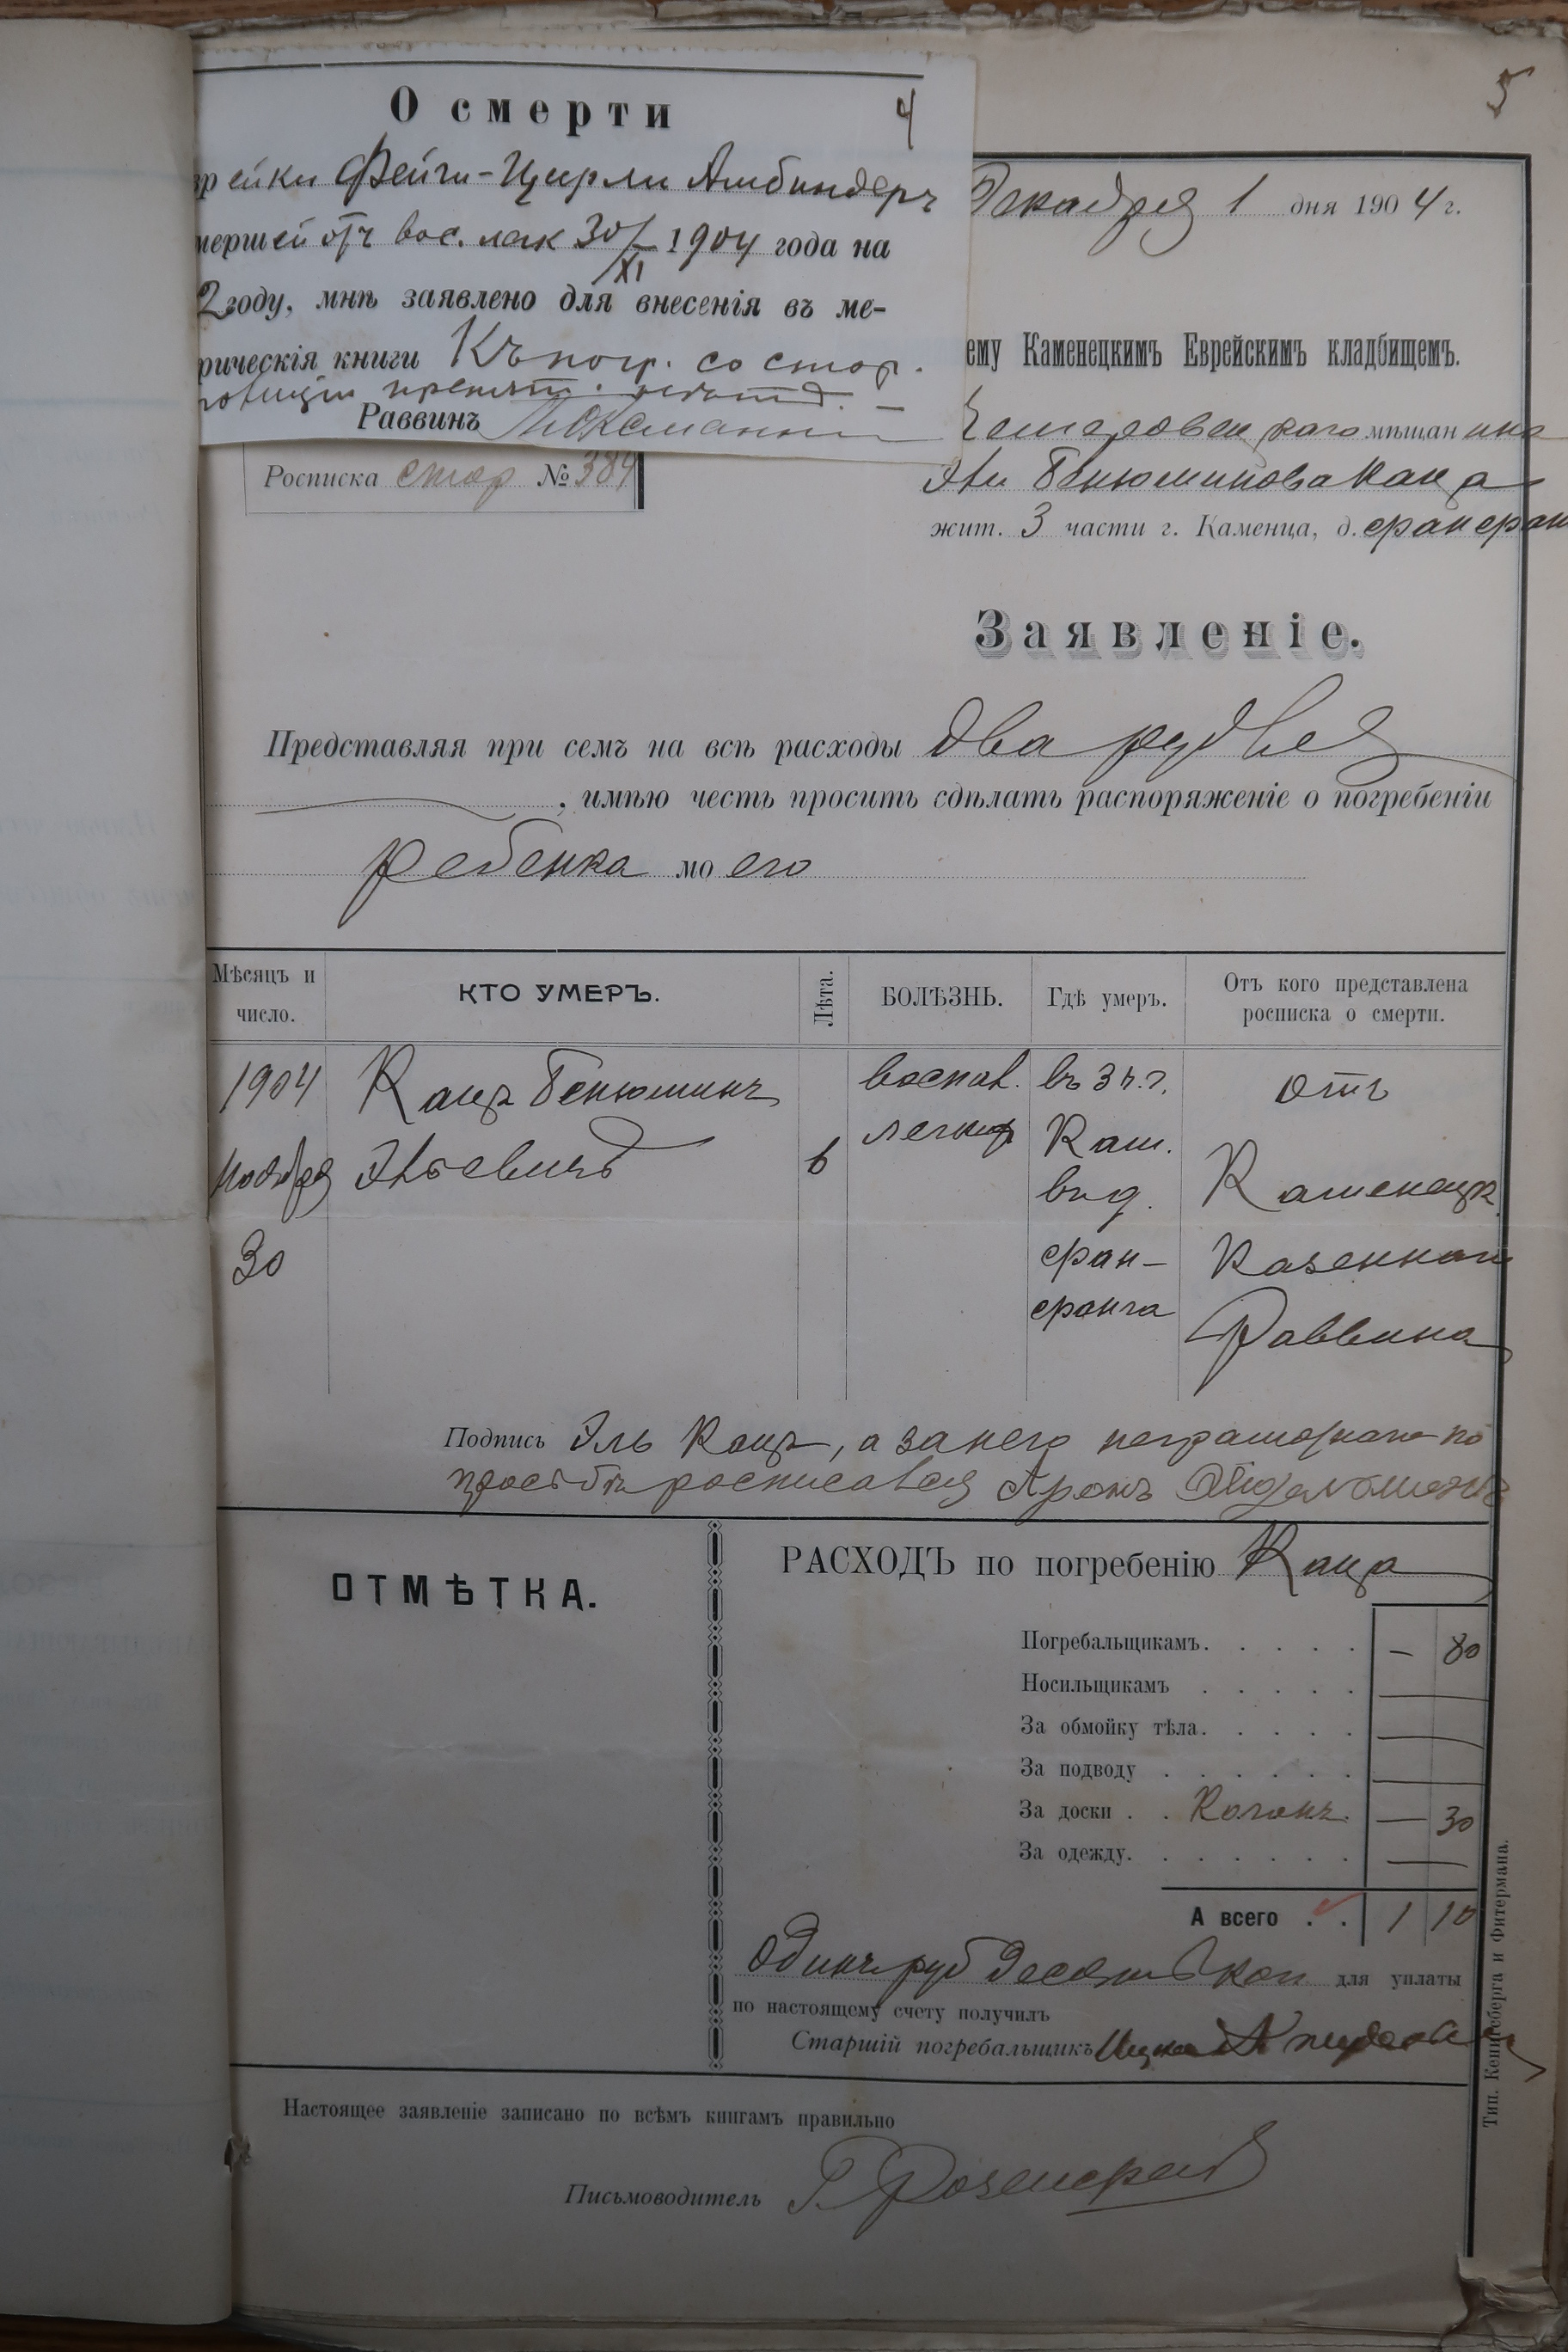 5
О смерти 4
рейки Фейги-Цирли Амбиндеръ
мершей отъ вос. лек 30/XI 1904 года на
2 году, мнѣ заявлено для внесенія въ ме-
рическія книги Къ погр. со стор.
Раввинъ
Декабря 1 дня 1904 г.
ему Каменецкимъ Еврейскимъ кладбищемъ.
мѣщанина
Росписка стор №384
Эли Бенюминова Каца
жит. 3 части г. Каменца, д.
Заявленіе.
Представляя при семъ на всѣ расходы два рубля
, имѣю честь просить сдѣлать распоряженіе о погребеніи
ребенка моего
Мѣсяцъ и число.
КТО УМЕРЪ.
Лѣта.
БОЛѢЗНЬ.
Гдѣ умеръ.
Отъ кого представлена росписка о смерти.
1904 Ноября 30
Кацъ Бенюминъ Эльевичъ
6
воспал. легких
въ 3 ч. г. Кам. въ д.
Отъ Каменецк. Казеннаго Раввина
Подпись Эль Кацъ, а за него неграмотнаго по
просьбѣ росписался Аронъ
ОТМѢТКА.
РАСХОДЪ по погребенію Каца
Погребальщикамъ. . . . . — 80
Носильщикамъ . . . . . —
За обмойку тѣла. . . . . —
За подводу . . . . . . —
За доски . . Коганъ — 30
За одежду. . . . . . . —
А всего . . 1 10
Одинъ руб десять коп для уплаты
по настоящему счету получилъ
Старшій погребальщикъ Ицко
Настоящее заявленіе записано по всѣмъ книгамъ правильно
Письмоводитель
Тип. Кенигсберга и Фитермана.